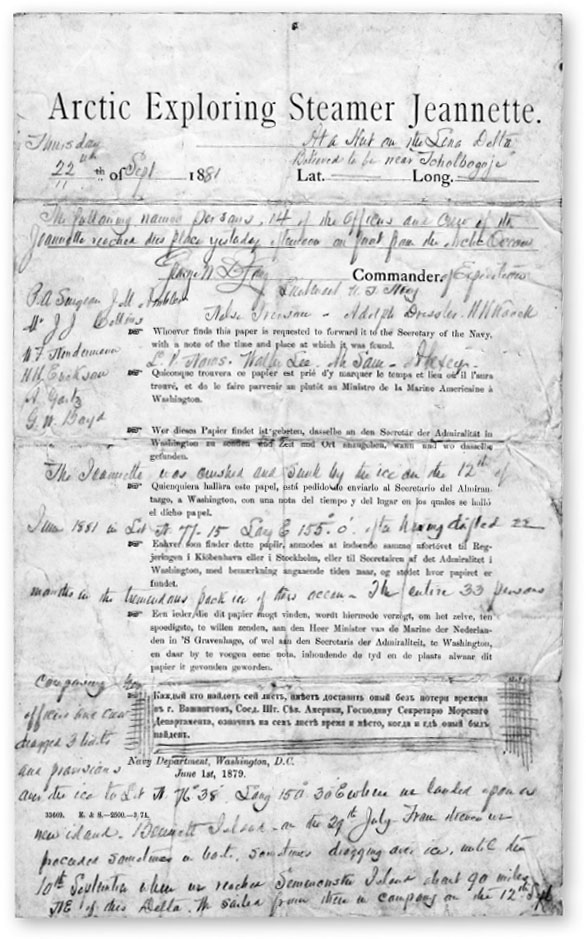 Arctic Exploring Steamer Jeannette.
Thursday
At a Hut on the Lena Delta
believed to be near Tcholbogoje
22nd th of Sept 1881
Lat. Long.
The following named persons, 14 of the Officers and Crew of the
Jeannette reached this place yesterday afternoon on foot from the Arctic Ocean
George W. De Long
Commander. of Expedition
Lieutenant U.S. Navy
P.A. Surgeon J. M. Ambler
Nelse Iverson - Adolph Dressler. H. H. Kaack
Mr. J. J. Collins
☞ Whoever finds this paper is requested to forward it to the Secretary of the Navy,
with a note of the time and place at which it was found.
W F Nindemann
Walter Lee. Ah Sam - Alexey.
☞ Quiconque trouvera ce papier est prié d'y marquer le temps et lieu où il l'aura
H. H. Erickson
trouvé, et do le faire parvenir au plutôt au Ministro de la Marine Americaine à
Washington.
A. Gortz
G. W. Boyd
☞ Wer dieses Papier findet ist gebeten, dasselbe an den Secretär der Admiralität in
Washington zu senden und Zeit und Ort anzugeben, wann und wo dasselbe
gefunden.
The Jeannette was crushed and sunk by the ice on the 12th of
☞ Quienquiera hallára este papel, está pedido de enviarlo al Secretario del Almiran-
tazgo, a Washington, con una nota del tiempo y del lugar en los quales se halló
el dicho papel.
June 1881 in Lat N. 77. 15 Long E 155° 0' after having drifted 22
☞ Enhver som finder dette papiir, anmodes at indsende samme ufortövet til Reg-
jeringen i Kiöbenhavn eller i Stockholm, eller til Secretairen af det Admiralitet i
Washington, med bemærkning angaaende tiden naar, og stedet hvor papiret er
fundet.
months in the tremendous pack ice of this ocean - The entire 33 persons
☞ Een ieder, die dit papier mogt vinden, wordt hiermede verzogt, om het zelve, ten
spoedigste, te willen zenden, aan den Heer Minister van de Marine der Nederlan-
den in 'S Gravenhage, of wel aan den Secretaris der Admiraliteit, te Washington,
en daar by te voegen eene nota, inhoudende de tyd en de plaats alwaar dit
papier it gevonden geworden.
composing her
☞ Каждый кто найдетъ сей листъ, имѣетъ доставить оный безъ потери времени
officers and crew
въ г. Вашингтонъ, Соед. Шт. Сѣв. Америки, Господину Секретарю Морскаго
Департамента, означивъ на семъ листѣ время и мѣсто, когда и гдѣ оный былъ
dragged 3 boats
найденъ.
and provisions
Navy Department, Washington, D.C.
June 1st, 1879.
over the ice to Lat N. 76° 38' Long 150° 30' E where we landed upon a
33469. E. & S.—2500.—3, 71.
new island. Bennett Island - on the 29th July. From thence we
proceeded sometimes in boats, sometimes dragging over ice, until the
10th September when we reached Semenovski Island about 90 miles
NE of this Delta. We sailed from there in company on the 12th Sept